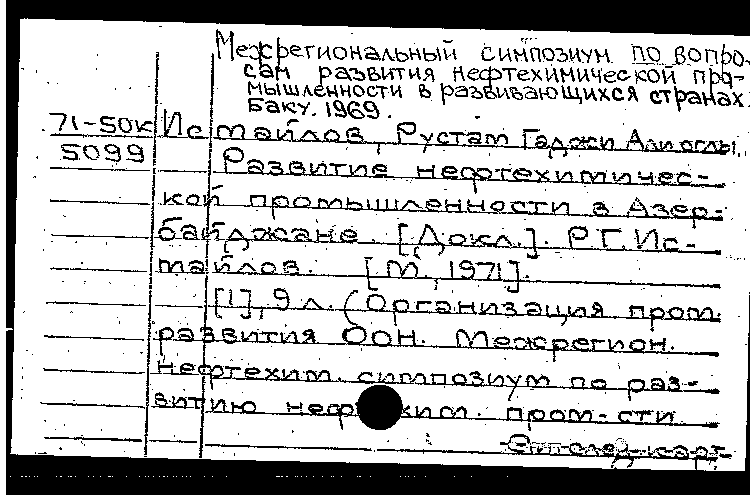 Межрегиональный симпозиум по вопро-
сам развития нефтехимической про-
мышленности в развивающихся странах.
Баку. 1969.
71-50к Исмайлов, Рустам Гаджи Али оглы.
5099 Развитие нефтехимичес-
кой промышленности в Азер-
байджане. [Докл.]. Р.Г. Ис-
майлов. [М., 1971].
[1], 9 л. (Организация пром.
развития ООН. Межрегион.
нефтехим. симпозиум по раз-
витию нефтехим. пром-сти
См. след. карт.